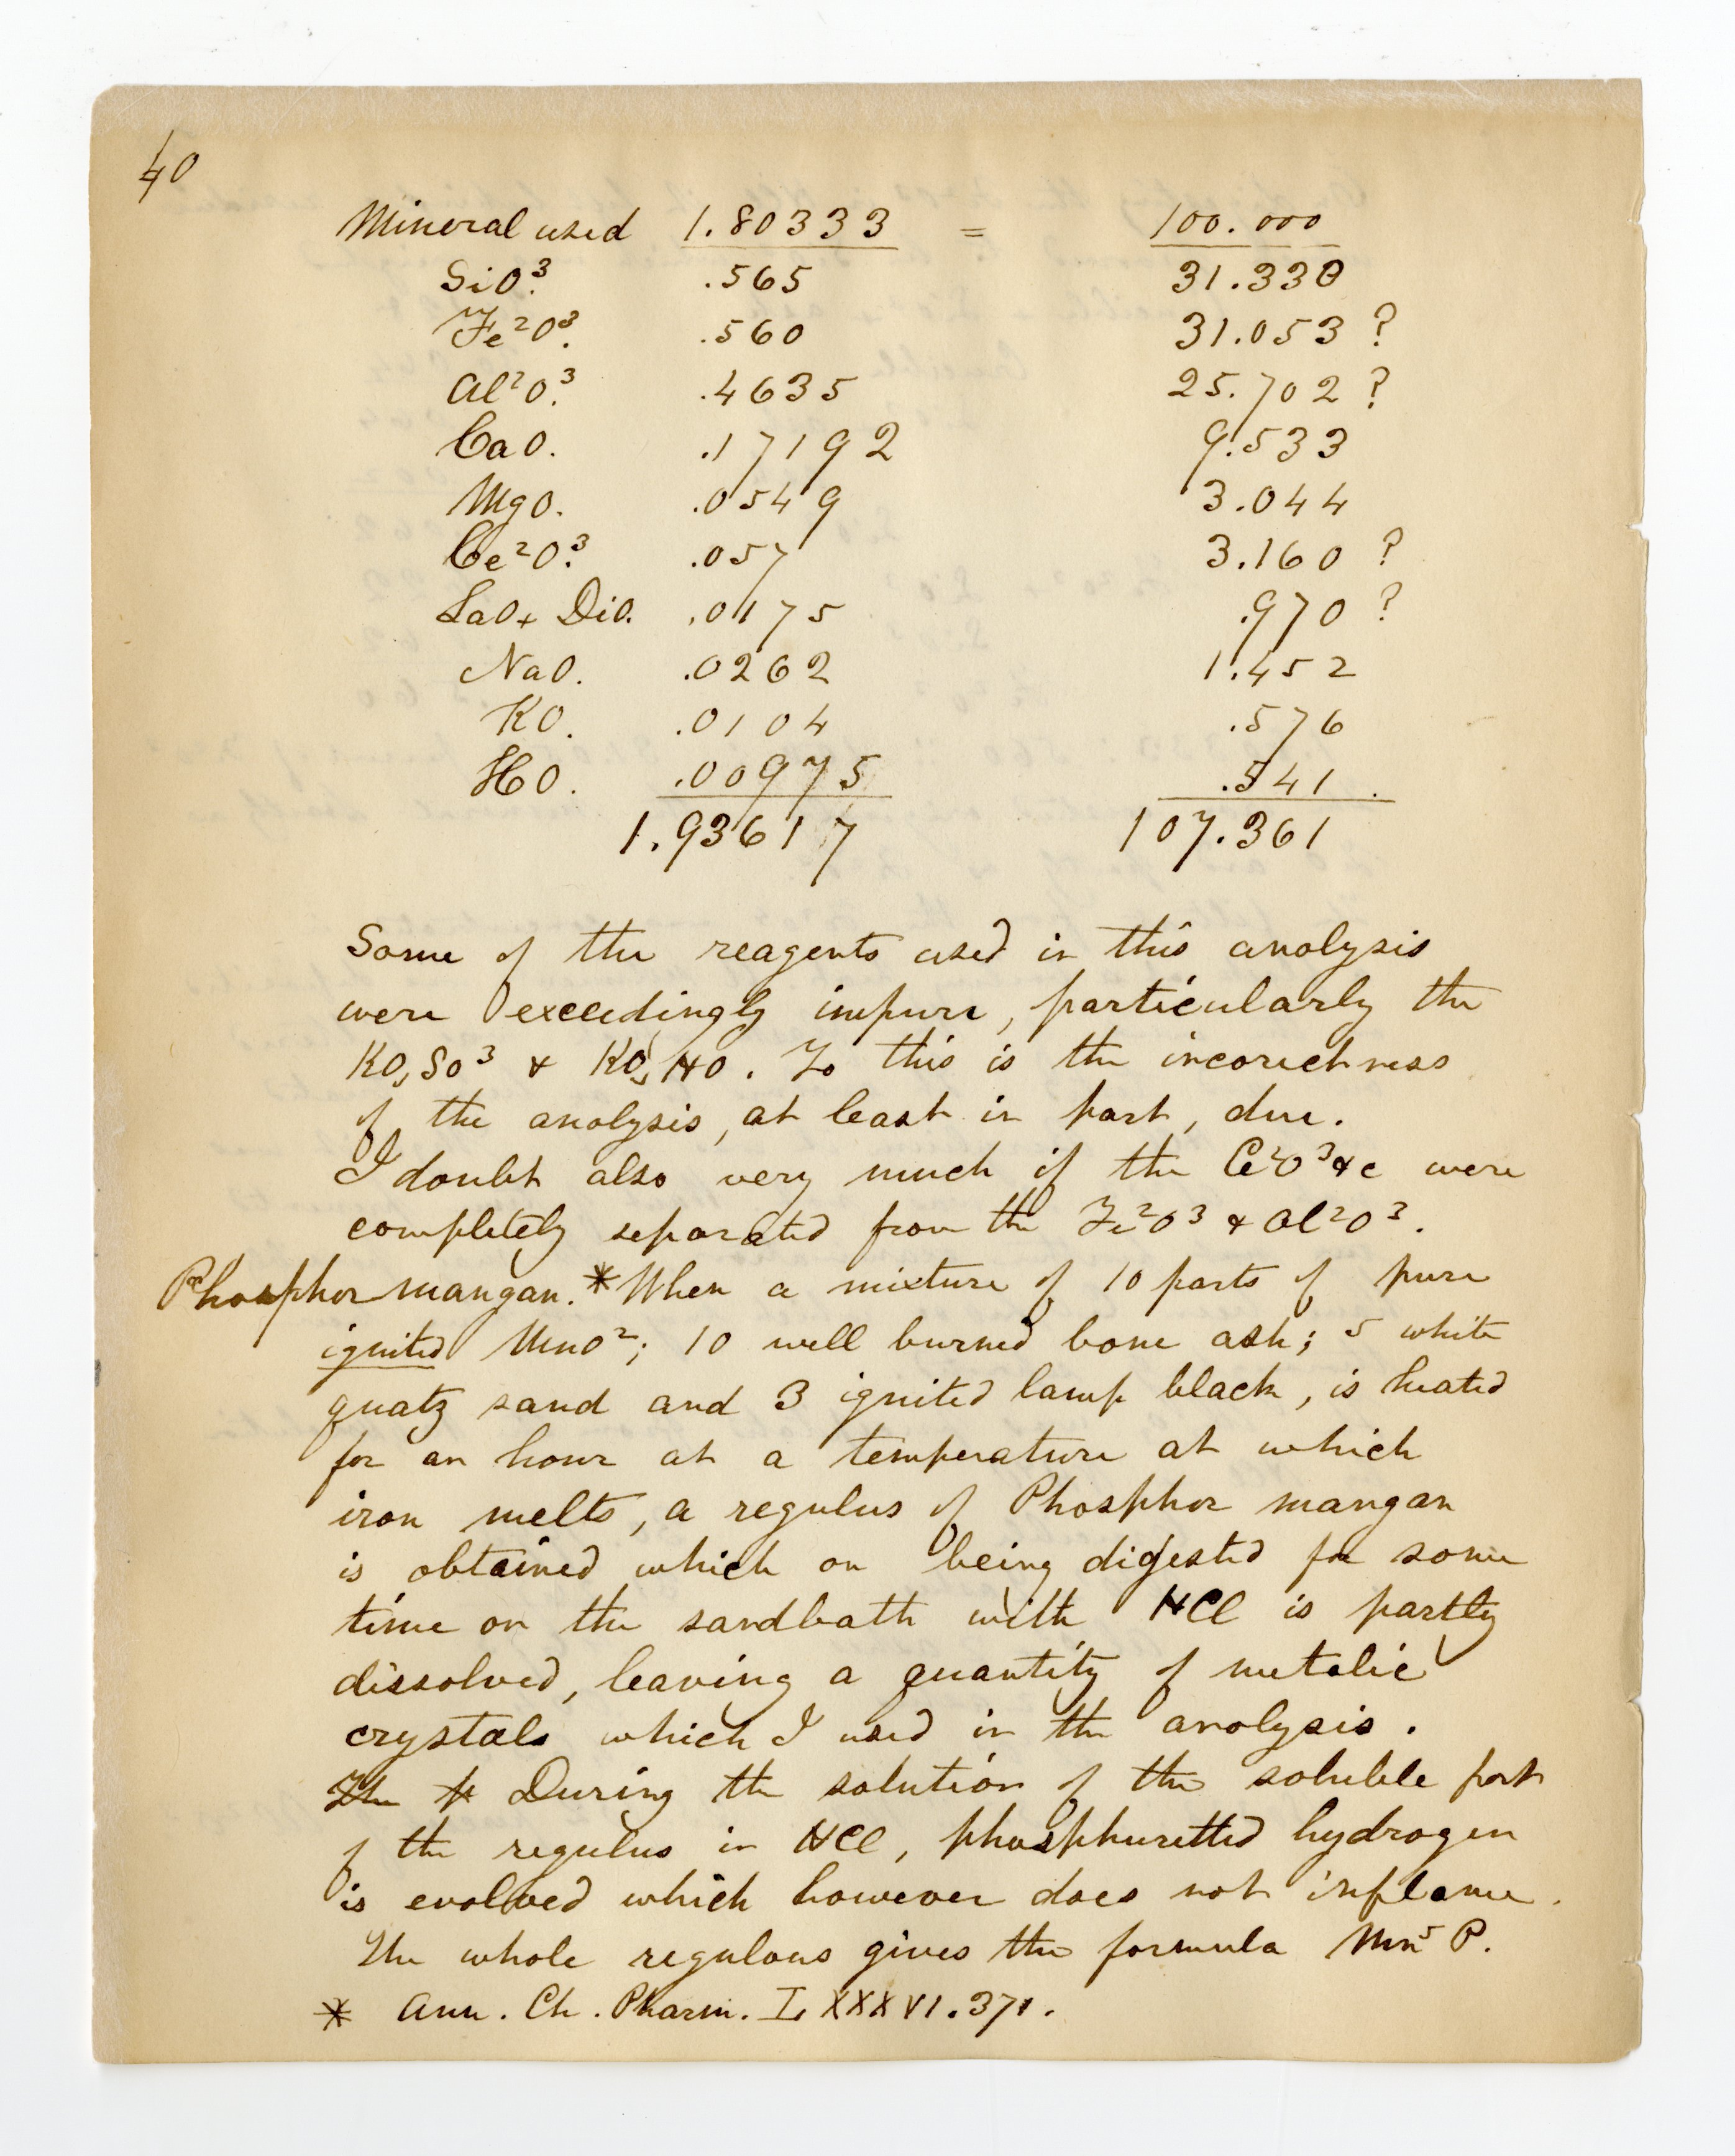 40
Mineral used 1.80333 = 100.000
SiO³. .565 31.330
Fe²O³. .560 31.053 ?
Al²O³. .4635 25.702 ?
CaO. .17192 9.533
MgO. .0549 3.044
Ce²O³. .057 3.160 ?
LaO+ DiO. .0175 .970 ?
NaO. .0262 1.452
KO. .0104 .576
HO. .00975 .541.
1.93617 107.361
Some of the reagents used in this analysis
were exceedingly impure, particularly the
KO,SO³ & KO,HO. To this is the incorectness
of the analysis, at least in part, due.
I doubt also very much if the Ce²O³ &c were
completely separated from the Fe²O³ & Al²O³.
Phosphor mangan.* When a mixture of 10 parts of pure
ignited MnO²; 10 well burned bone ash; 5 white
quatz sand and 3 ignited lamp black, is heated
for an hour at a temperature at which
iron melts, a regulus of Phosphor mangan
is obtained which on being digested for some
time on the sandbath with HCl is partly
dissolved, leaving a quantity of metalic
crystals which I used in the analysis.
The p During the solution of the soluble part
of the regulus in HCl, phosphuretted hydrogen
is evolved which however does not inflame.
The whole regulous gives the formula Mn⁵P.
* Ann. Ch. Pharm. LXXXVI.371.